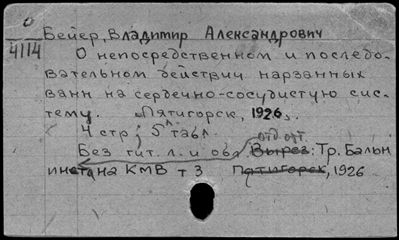 0
4114
Бейер, Владимир Александрович
О непосредственном и последо-
вательном действии нарзанных
ванн на сердечно-сосудистую сис-
тему. Пятигорск, 1926.
4 стр; 5 л. табл.
отд. отт.
Без тит. л. и обл. Вырез: Тр. Бальн
инст на КМВ т 3 Пятигорск, 1926